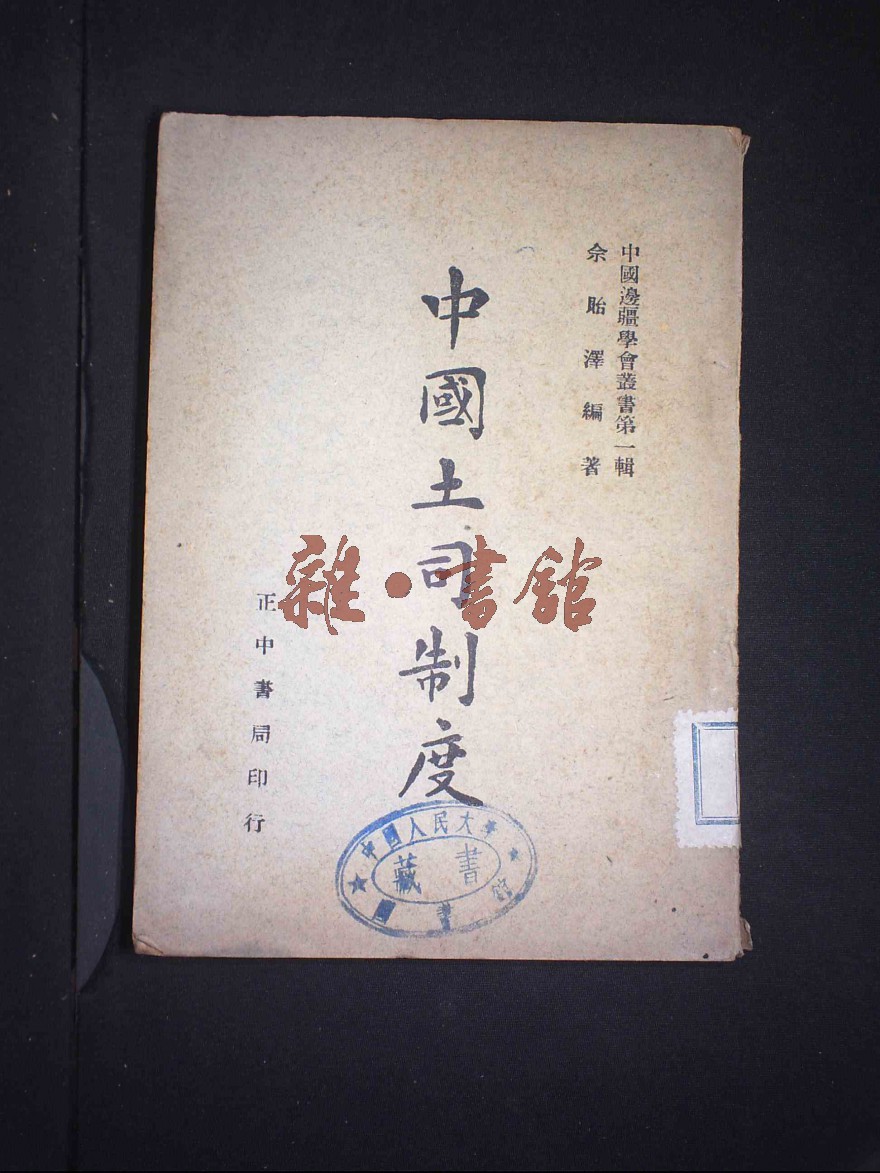 中國邊疆學會叢書第一輯
佘貽澤編著
中國土司制度
正中書局印行
雜·書館
中國人民大學
藏書
圖書館